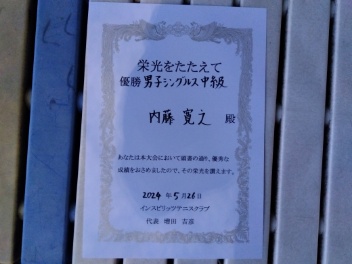 栄光をたたえて
優勝 男子シングルス中級
内藤 寛之 殿
あなたは本大会において頭書の通り、優秀な
成績をおさめましたので、その栄光を讃えます。
2024 年 5 月 26 日
インスピリッツテニスクラブ
代表 増田 吉彦